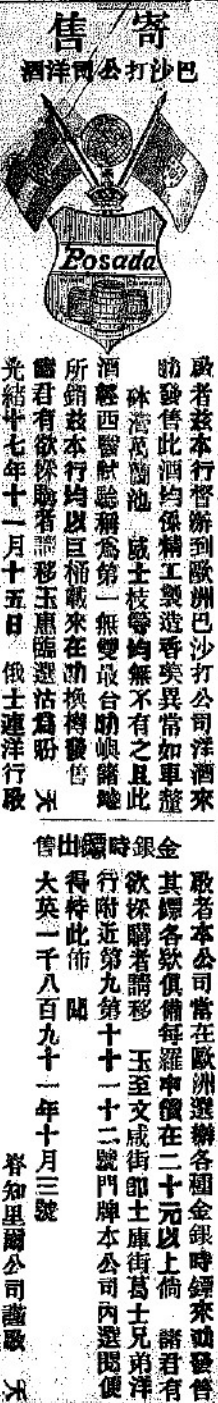 寄售
巴沙打公司洋酒
Posada
啟者茲本行督辦到歐洲巴沙打公司洋酒來
叻發售此酒均係精工製造香美異常如車釐
砵濡萬蘭池 威士枝等均無不有之且此
酒經西醫試驗稱爲第一無雙最合叻嶼諸埠
所銷茲本行均以巨桶載來在叻換樽發售
諸君有欲採購者請移玉惠臨選沽爲盼 天
光緒十七年十一月十五日 俄士連洋行啟
金銀時鏢出售
啟者本公司常在歐洲選辦各種金銀時鏢來叻發售
其鏢各欵俱備每羅申價在二十元以上倘 諸君有
欲採購者請移 玉至文咸街卽土庫街葛士兄弟洋
行附近第九第十十一十二號門牌本公司內選閱便
得特此佈 聞
大英一千八百九十一年十月三號
 知里爾公司謹啟 天